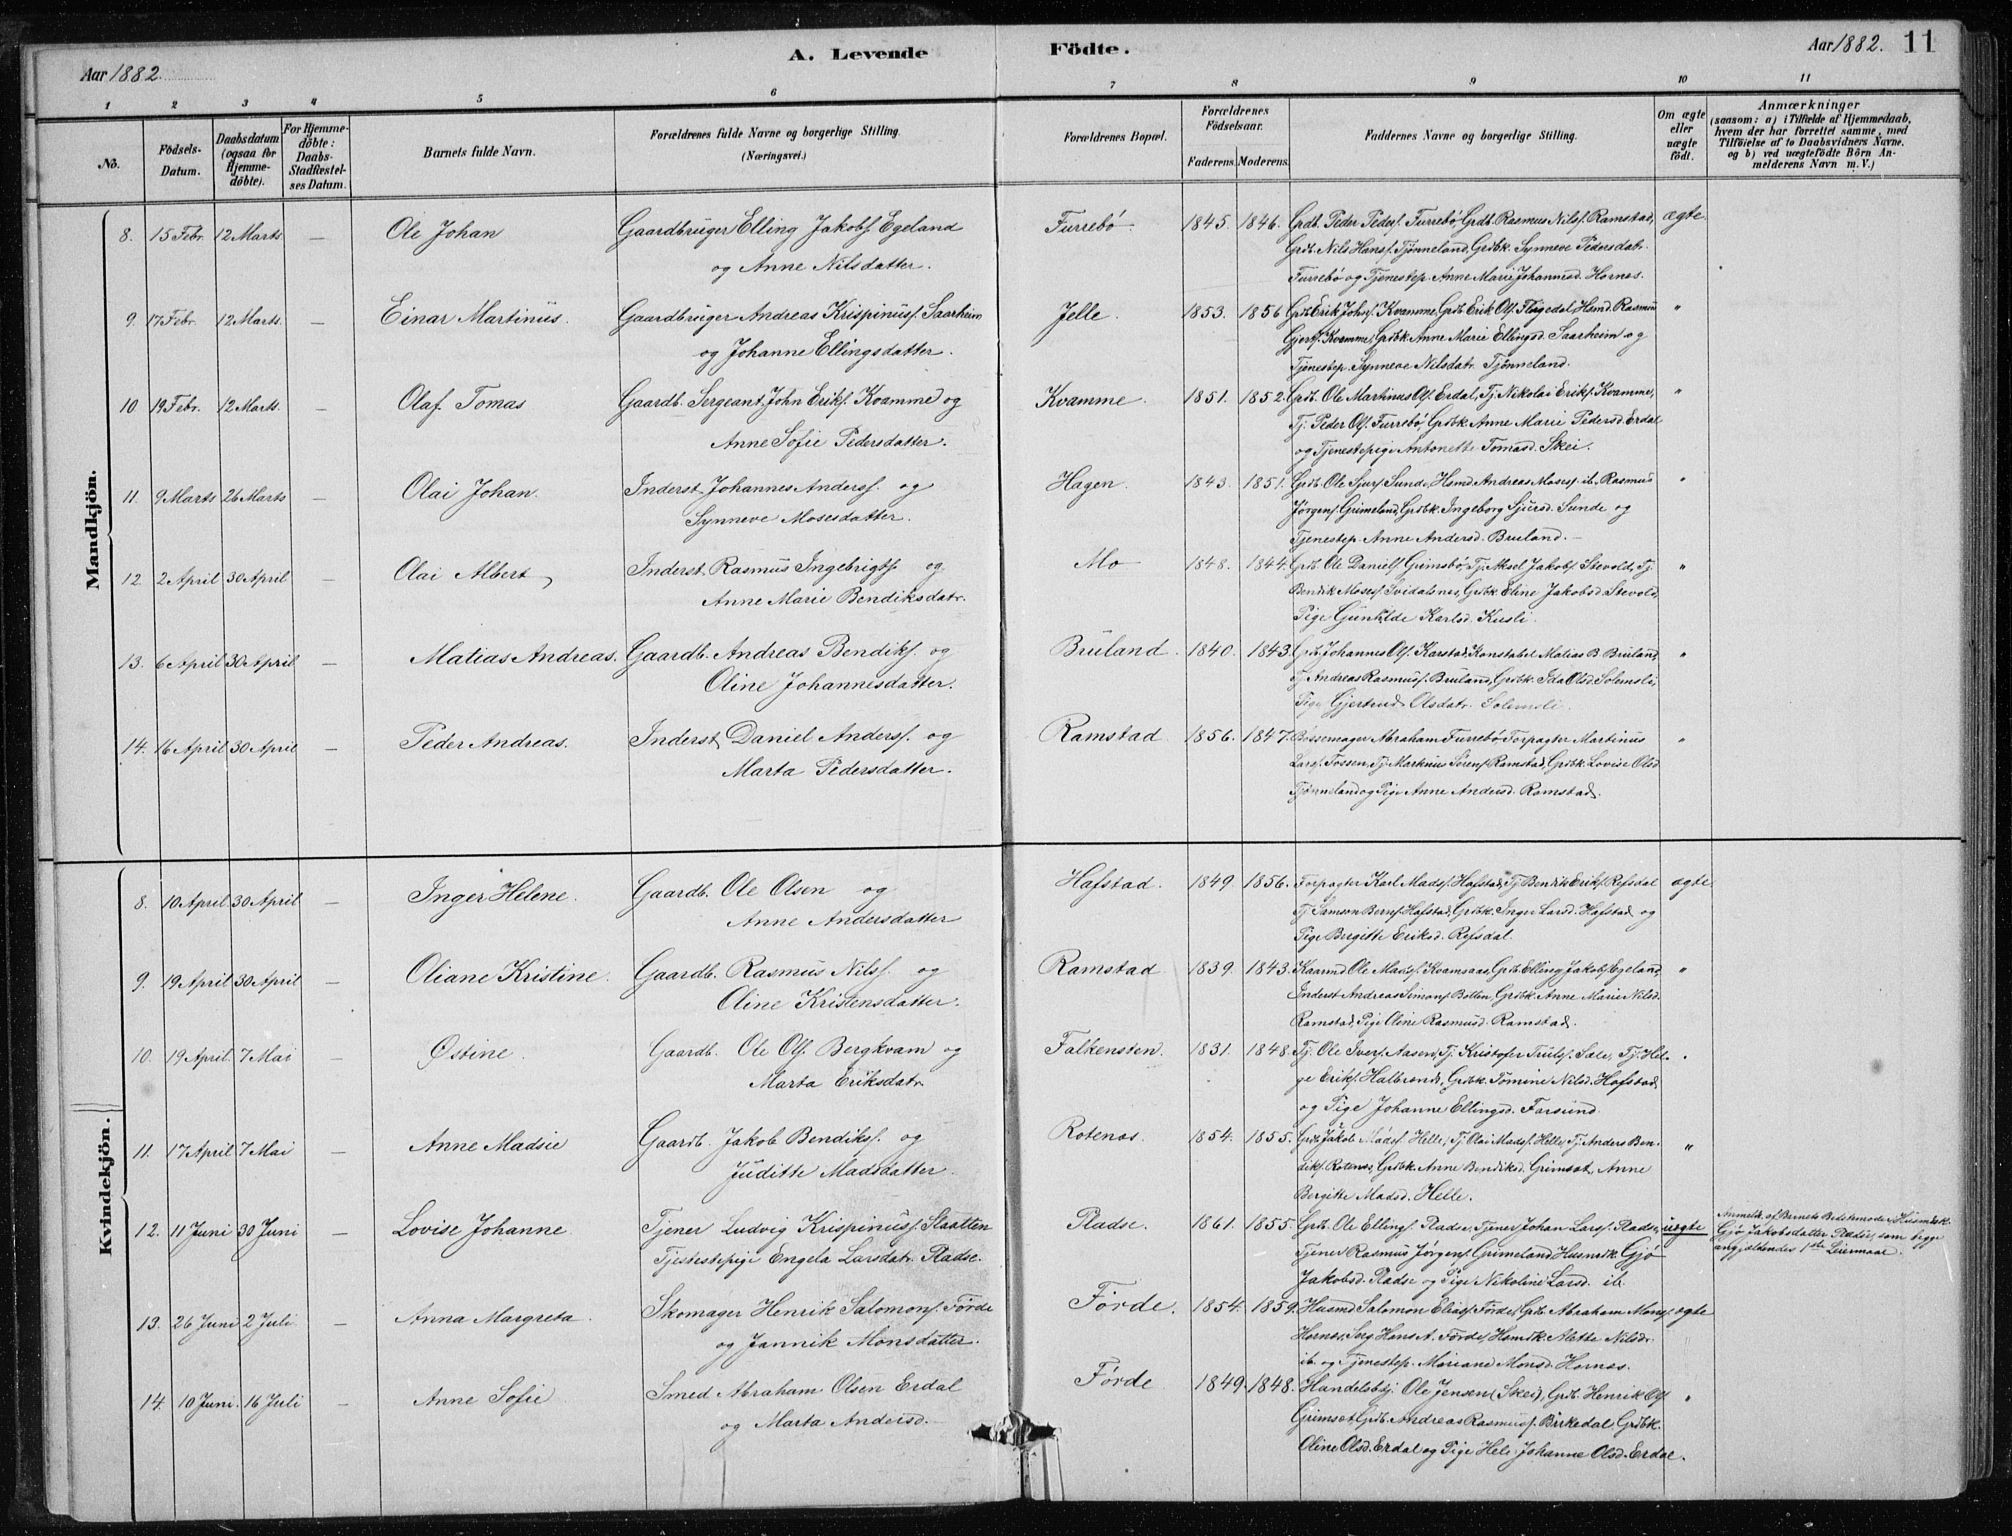 Aar 1882.
A. Levende Födte.
Aar 1882. 11
1 2 3 4 5 6 7 8 9 10 11
No.
Födsels-Datum.
Daabsdatum (ogsaa for Hjemme-döbte).
For Hjemme-döbte: Daabs-Stadfæstel-ses Datum.
Barnets fulde Navn.
Forældrenes fulde Navne og borgerlige Stilling. (Næringsvei.)
Forældrenes Bopæl.
Forældrenes Födselsaar.
Faderens. Moderens.
Faddernes Navne og borgerlige Stilling.
Om ægte eller uægte födt.
Anmærkninger
(saasom: a) i Tilfælde af Hjemmedaab,
hvem der har forrettet samme, med
Tilföielse af to Daabsvidners Navne.
og b) ved uægtefödte Börn An-
melderens Navn m. V.)
Mandkjön.
8. 15 Febr. 12 Marts. — Ole Johan Gaardbruger Elling Jakobs. Egeland Furrebø 1845. 1846. Grdb. Peder Peders. Furrebø, Grdb. Rasmus Nils. Ramstad, ægte.
og Anne Nilsdatter. Grdb. Nils Hans. Tjønneland, Grdbk. Synneve Pedersdatr.
Furrebø og Tjenestep. Anne Marie Johannesd. Hornes.
9. 17 Febr. 12 Marts. — Einar Martinus. Gaardbruger Andreas Krispinus. Saarheim Jelle. 1853. 1856 Grdb Erik Johs. Kvamme, Grdb Erik Ols. Flugedal Hsmd. Rasmus "
og Johanne Ellingsdatter. Gjerts. Kvamme, Grdbk. Anne Marie Ellingsd. Saarheim og
Tjenestep. Synneve Nilsdatr. Tjønneland.
10 19 Febr. 12 Marts. — Olaf Tomas Gaardb. Sergeant John Eriks. Kvamme og Kvamme. 1851. 1852. Grdb. Ole Martinus Ols. Erdal, Tj. Nikolai Eriks. Kvamme, "
Anne Sofie Pedersdatter. Tj. Peder Ols. Furrebø, Grdbk. Anne Marie Pedersd. Erdal
og Tjenestepige Antonette Tomasd. Skei.
11. 9 Marts 26 Marts — Olai Johan. Inderst Johannes Anders. og Hagen. 1843. 1851. Grdb. Ole Sjurs. Sunde, Hsmd. Andreas Moses. ib. Rasmus "
Synneve Mosesdatter. Jørgens. Grimeland, Grdbk. Ingeborg Sjursd. Sunde og
Tjenestep. Anne Andersd. Bruland.
12 2 April 30 April — Olai Albert Inderst. Rasmus Ingebrigts. og Mo 1848. 1844. Grdb. Ole Daniels. Grimsbø, Tj. Aksel Jakobs. Stevold, Tj. "
Anne Marie Bendiksdatr. Bendik Moses. Svidalsnes, Grdbk. Eline Jakobsd. Stevold,
Pige Gunhilde Karlsd. Kusli.
13. 6 April 30 April — Matias Andreas. Gaardb. Andreas Bendiks. og Bruland. 1840. 1843. Grdb. Johannes Ols. Karstad, Konstabel Matias B. Bruland, "
Oline Johannesdatter. Tj. Andreas Rasmus. Bruland, Grdbk. Ida Olsd. Solemsli,
Pige Gjertrud Olsdatr. Solemsli.
14. 16 April 30 April — Peder Andreas. Inderst Daniel Anders. og Ramstad 1856. 1847. Bøssemager Abraham Furrebø, Forpagter Martinus "
Marta Pedersdatter. Lars. Fossen, Tj. Martinus Sørens. Ramstad, Grdbk. Lovise Olsd.
Tjønneland og Pige Anne Andersd. Ramstad.
Kvindekjön.
8. 10 April 30 April — Inger Helene. Gaardb. Ole Olsen og Hafstad. 1849. 1856. Forpagter Karl Mads. Hafstad, Tj. Bendik Eriks. Refsdal ægte.
Anne Andersdatter Tj. Samson Berns. Hafstad, Grdbk. Inger Larsd. Hafstad og
Pige Bergitte Eriksd. Refsdal.
9. 19 April 30 April — Oliane Kristine. Gaardb. Rasmus Nils. og Ramstad 1839. 1843. Kaarmd Ole Mads. Kvamsaas, Grdb. Elling Jakobs. Egeland, "
Oline Kristensdatter. Inderst Andreas Simons. Botten, Grdbk. Anne Marie Nilsd.
Ramstad, Pige Oline Rasmusd. Ramstad.
10. 19 April. 7 Mai — Østine. Gaardb. Ole Ols. Bergkvam og Falkensten. 1831. 1848. Tj. Ole Ivers. Aasen, Tj. Kristofer Truls. Sæle, Tj. Hel- "
Marta Eriksdatr. ge Eriks. Halbrends, Grdbk. Tomine Nilsd. Hafstad
og Pige Johanne Ellingsd. Farsund.
11. 17 April 7 Mai — Anne Madsie Gaardb. Jakob Bendiks. og Rotenas. 1854. 1855. Grdb. Jakob Mads. Helle, Tj. Olai Mads. Helle, Tj. Anders Ben- "
Juditte Madsdatter diks. Rotenes, Grdbk. Anne Bendiksd. Grimset, Anne
Bergitte Madsd. Helle.
12. 11 Juni 30 Juni — Lovise Johanne Tjener Ludvig Krispinus. Slaatten Pladse. 1861. 1855. Grdb. Ole Ellings. Pladse, Tjener Johan Lars. Pladse, uægte Anmeldt af Barnets Bedstemoder Husmdsk.
Tjestestepige Engela Larsdatr. Pladse. Tjener Rasmus Jørgens. Grimeland Husmdk. Gjø Gjø Jakobsdatter Pladse, som begge
Jakobsd. Pladse og Pige Nikoline Larsd. ib. angjældendes 1ste Leiermaal.
13. 26 Juni 2 Juli. — Anna Margreta. Skomager Henrik Salomons. Førde Førde. 1854. 1859. Husmd Salomon Elias. Førde, Grdb. Abraham Mons. ægte
og Jannik Monsdatter. Hornes, Serg Hans A. Førde, Hsmdk. Alette Nilsdr.
ib. og Tjenestep. Mariane Monsd. Hornes.
14. 10 Juni. 16 Juli — Anne Sofie Smed Abraham Olsen Erdal Førde 1849. 1848. Handelsbtj. Ole Jensen (Skei), Grdb. Henrik Ols. "
og Marta Andersd. Grimset, Grdb. Andreas Rasmus. Birkedal, Grdbk.
Oline Olsd. Erdal og Pige Hele Johanne Olsd. Erdal.